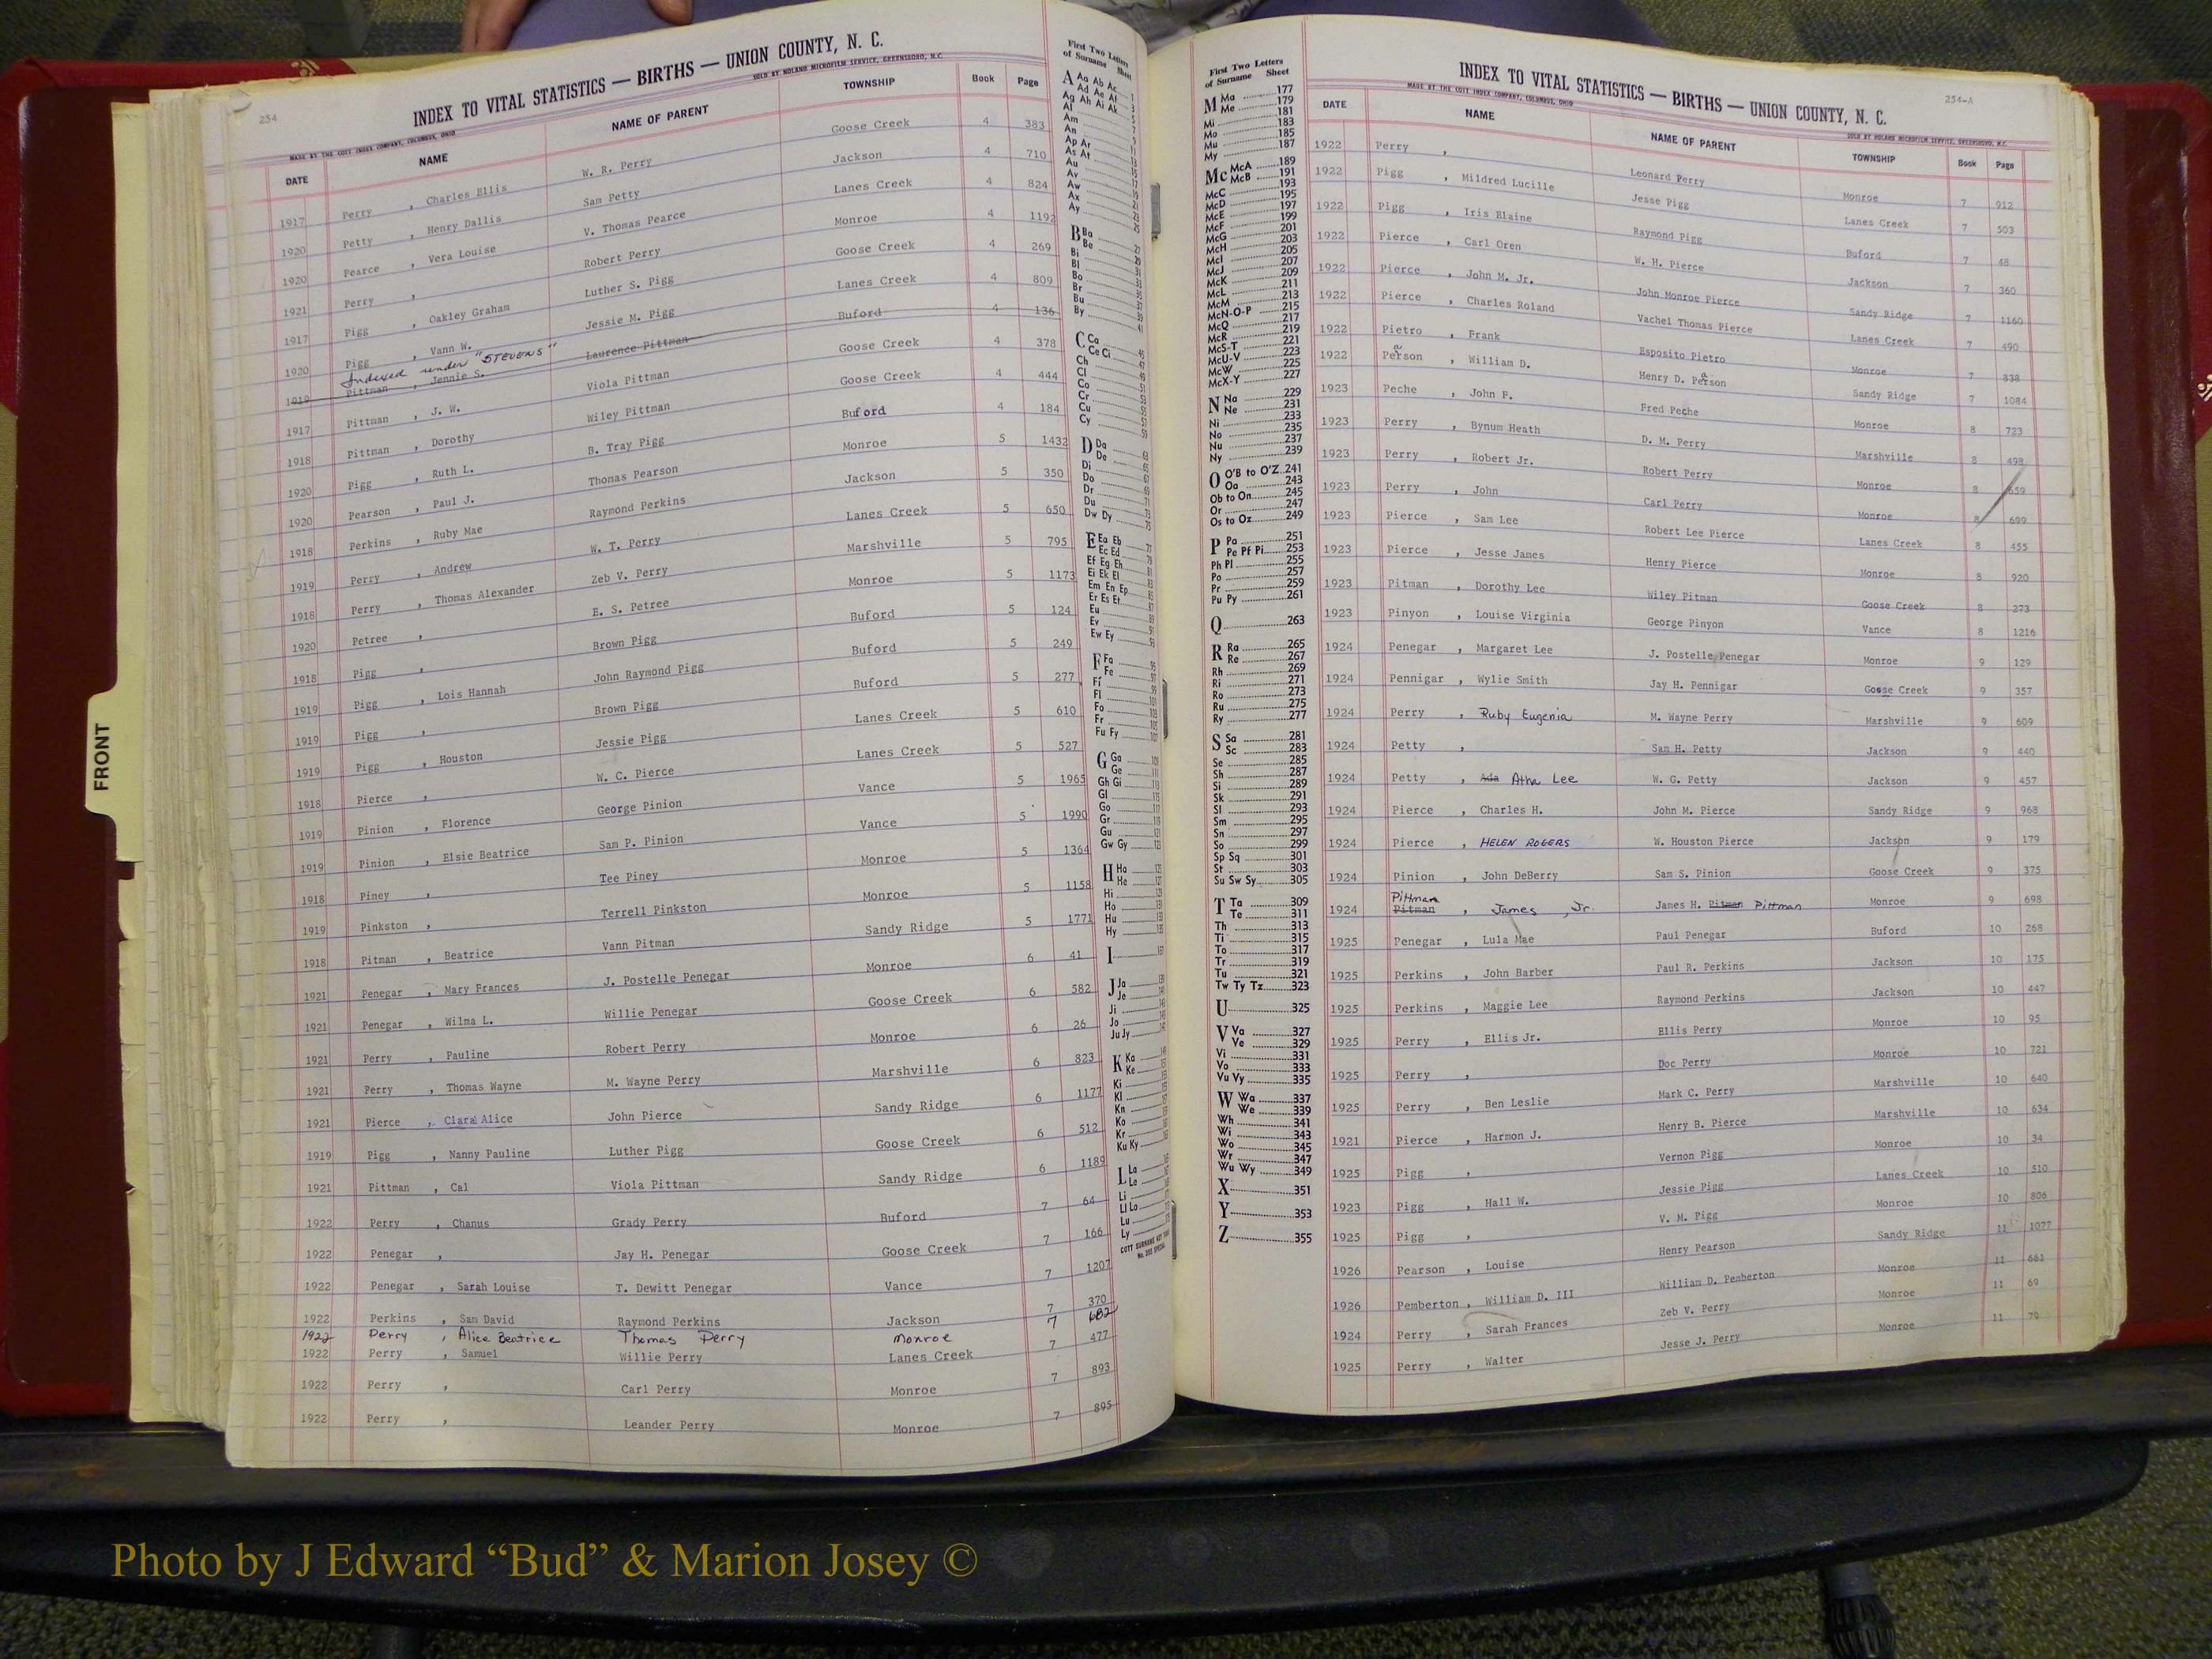 254
INDEX TO VITAL STATISTICS — BIRTHS — UNION COUNTY, N. C.
MADE BY THE COTT INDEX COMPANY, COLUMBUS, OHIO SOLD BY NOLAND MICROFILM SERVICE, GREENSBORO, N.C.
DATE NAME NAME OF PARENT TOWNSHIP Book Page
1917 Perry , Charles Ellis W. R. Perry Goose Creek 4 383
1920 Petty , Henry Dallis Sam Petty Jackson 4 710
1920 Pearce , Vera Louise V. Thomas Pearce Lanes Creek 4 824
1921 Perry , Robert Perry Monroe 4 1192
1917 Pigg , Oakley Graham Luther S. Pigg Goose Creek 4 269
1920 Pigg , Vann W. Jessie M. Pigg Lanes Creek 4 809
Indexed under "STEVENS"
1919 Pittman , Jennie S. Laurence Pittman Buford 4 136
1917 Pittman , J. W. Viola Pittman Goose Creek 4 378
1918 Pittman , Dorothy Wiley Pittman Goose Creek 4 444
1920 Pigg , Ruth L. B. Tray Pigg Buford 4 184
1920 Pearson , Paul J. Thomas Pearson Monroe 5 1432
1918 Perkins , Ruby Mae Raymond Perkins Jackson 5 350
1919 Perry , Andrew W. T. Perry Lanes Creek 5 650
1918 Perry , Thomas Alexander Zeb V. Perry Marshville 5 795
1920 Petree , E. S. Petree Monroe 5 1173
1918 Pigg , Brown Pigg Buford 5 124
1919 Pigg , Lois Hannah John Raymond Pigg Buford 5 249
1919 Pigg , Brown Pigg Buford 5 277
1919 Pigg , Houston Jessie Pigg Lanes Creek 5 610
1918 Pierce , W. C. Pierce Lanes Creek 5 527
1919 Pinion , Florence George Pinion Vance 5 1965
1919 Pinion , Elsie Beatrice Sam P. Pinion Vance 5 1990
1918 Piney , Tee Piney Monroe 5 1364
1919 Pinkston , Terrell Pinkston Monroe 5 1158
1918 Pitman , Beatrice Vann Pitman Sandy Ridge 5 1771
1921 Penegar , Mary Frances J. Postelle Penegar Monroe 6 41
1921 Penegar , Wilma L. Willie Penegar Goose Creek 6 582
1921 Perry , Pauline Robert Perry Monroe 6 26
1921 Perry , Thomas Wayne M. Wayne Perry Marshville 6 823
1921 Pierce , Clara Alice John Pierce Sandy Ridge 6 1177
1919 Pigg , Nanny Pauline Luther Pigg Goose Creek 6 512
1921 Pittman , Cal Viola Pittman Sandy Ridge 6 1189
1922 Perry , Chanus Grady Perry Buford 7 64
1922 Penegar , Jay H. Penegar Goose Creek 7 166
1922 Penegar , Sarah Louise T. Dewitt Penegar Vance 7 1207
1922 Perkins , Sam David Raymond Perkins Jackson 7 370
1922 Perry , Alice Beatrice Thomas Perry Monroe 7 682
1922 Perry , Samuel Willie Perry Lanes Creek 7 477
1922 Perry , Carl Perry Monroe 7 893
1922 Perry , Leander Perry Monroe 7 895
FRONT
First Two Letters
of Surname Sheet
A Aa Ab Ac
Ad Ae Af
Ag Ah Ai Ak
Al
Am
An
Ap Ar
As At
Au
Av
Aw
Ax
Ay
B Ba
Be
Bi
Bl
Bo
Br
Bu
By
C Ca
Ce Ci
Ch
Cl
Co
Cr
Cu
Cy
D Da
De
Di
Do
Dr
Du
Dw Dy
E Ea Eb
Ec Ed
Ef Eg Eh
Ei Ek El
Em En Ep
Er Es Et
Eu
Ev
Ew Ey
F Fa
Fe
Fi
Fl
Fo
Fr
Fu Fy
G Ga
Ge
Gh Gi
Gl
Go
Gr
Gu
Gw Gy
H Ha
He
Hi
Ho
Hu
Hy
I
J Ja
Je
Ji
Jo
Ju Jy
K Ka
Ke
Ki
Kl
Kn
Ko
Kr
Ku Ky
L La
Le
Li
Ll Lo
Lu
Ly
First Two Letters
of Surname Sheet
M Ma 177
Me 179
Mi 181
Mo 183
Mu 185
My 187
Mc McA 189
McB 191
McC 193
McD 195
McE 197
McF 199
McG 201
McH 203
McI 205
McJ 207
McK 209
McL 211
McM 213
McN-O-P 215
McQ 217
McR 219
McS-T 221
McU-V 223
McW 225
McX-Y 227
N Na 229
Ne 231
Ni 233
No 235
Nu 237
Ny 239
O O'B to O'Z 241
Oa 243
Ob to On 245
Or 247
Os to Oz 249
P Pa 251
Pe Pf Pi 253
Ph Pl 255
Po 257
Pr 259
Pu Py 261
Q 263
R Ra 265
Re 267
Rh 269
Ri 271
Ro 273
Ru 275
Ry 277
S Sa 281
Sc 283
Se 285
Sh 287
Si 289
Sk 291
Sl 293
Sm 295
Sn 297
So 299
Sp Sq 301
St 303
Su Sw Sy 305
T Ta 309
Te 311
Th 313
Ti 315
To 317
Tr 319
Tu 321
Tw Ty Tz 323
U 325
V Va 327
Ve 329
Vi 331
Vo 333
Vu Vy 335
W Wa 337
We 339
Wh 341
Wi 343
Wo 345
Wr 347
Wu Wy 349
X 351
Y 353
Z 355
254-A
INDEX TO VITAL STATISTICS — BIRTHS — UNION COUNTY, N. C.
MADE BY THE COTT INDEX COMPANY, COLUMBUS, OHIO SOLD BY NOLAND MICROFILM SERVICE, GREENSBORO, N.C.
DATE NAME NAME OF PARENT TOWNSHIP Book Page
1922 Perry , Leonard Perry Monroe 7 912
1922 Pigg , Mildred Lucille Jesse Pigg Lanes Creek 7 503
1922 Pigg , Iris Elaine Raymond Pigg Buford 7 48
1922 Pierce , Carl Oren W. H. Pierce Jackson 7 360
1922 Pierce , John M. Jr. John Monroe Pierce Sandy Ridge 7 1160
1922 Pierce , Charles Roland Vachel Thomas Pierce Lanes Creek 7 490
1922 Pietro , Frank Esposito Pietro Monroe 7 838
1922 Person , William D. Henry D. Person Sandy Ridge 7 1084
1923 Peche , John F. Fred Peche Monroe 8 723
1923 Perry , Bynum Heath D. M. Perry Marshville 8 498
1923 Perry , Robert Jr. Robert Perry Monroe 8 659
1923 Perry , John Carl Perry Monroe 8 699
1923 Pierce , Sam Lee Robert Lee Pierce Lanes Creek 8 455
1923 Pierce , Jesse James Henry Pierce Monroe 8 920
1923 Pitman , Dorothy Lee Wiley Pitman Goose Creek 8 273
1923 Pinyon , Louise Virginia George Pinyon Vance 8 1216
1924 Penegar , Margaret Lee J. Postelle Penegar Monroe 9 129
1924 Pennigar , Wylie Smith Jay H. Pennigar Goose Creek 9 357
1924 Perry , Ruby Eugenia M. Wayne Perry Marshville 9 609
1924 Petty , Sam H. Petty Jackson 9 440
1924 Petty , Ada Atha Lee W. G. Petty Jackson 9 457
1924 Pierce , Charles H. John M. Pierce Sandy Ridge 9 968
1924 Pierce , HELEN ROGERS W. Houston Pierce Jackson 9 179
1924 Pinion , John DeBerry Sam S. Pinion Goose Creek 9 375
Pittman
1924 Pitman , James , Jr. James H. Pitman Pittman Monroe 9 698
1925 Penegar , Lula Mae Paul Penegar Buford 10 268
1925 Perkins , John Barber Paul R. Perkins Jackson 10 175
1925 Perkins , Maggie Lee Raymond Perkins Jackson 10 447
1925 Perry , Ellis Jr. Ellis Perry Monroe 10 95
1925 Perry , Doc Perry Monroe 10 721
1925 Perry , Ben Leslie Mark C. Perry Marshville 10 640
1921 Pierce , Harmon J. Henry B. Pierce Marshville 10 634
1925 Pigg , Vernon Pigg Monroe 10 34
1923 Pigg , Hall W. Jessie Pigg Lanes Creek 10 510
1925 Pigg , V. M. Pigg Monroe 10 806
1926 Pearson , Louise Henry Pearson Sandy Ridge 11 1077
1926 Pemberton , William D. III William D. Pemberton Monroe 11 661
1924 Perry , Sarah Frances Zeb V. Perry Monroe 11 69
1925 Perry , Walter Jesse J. Perry Monroe 11 70
Photo by J Edward “Bud” & Marion Josey ©